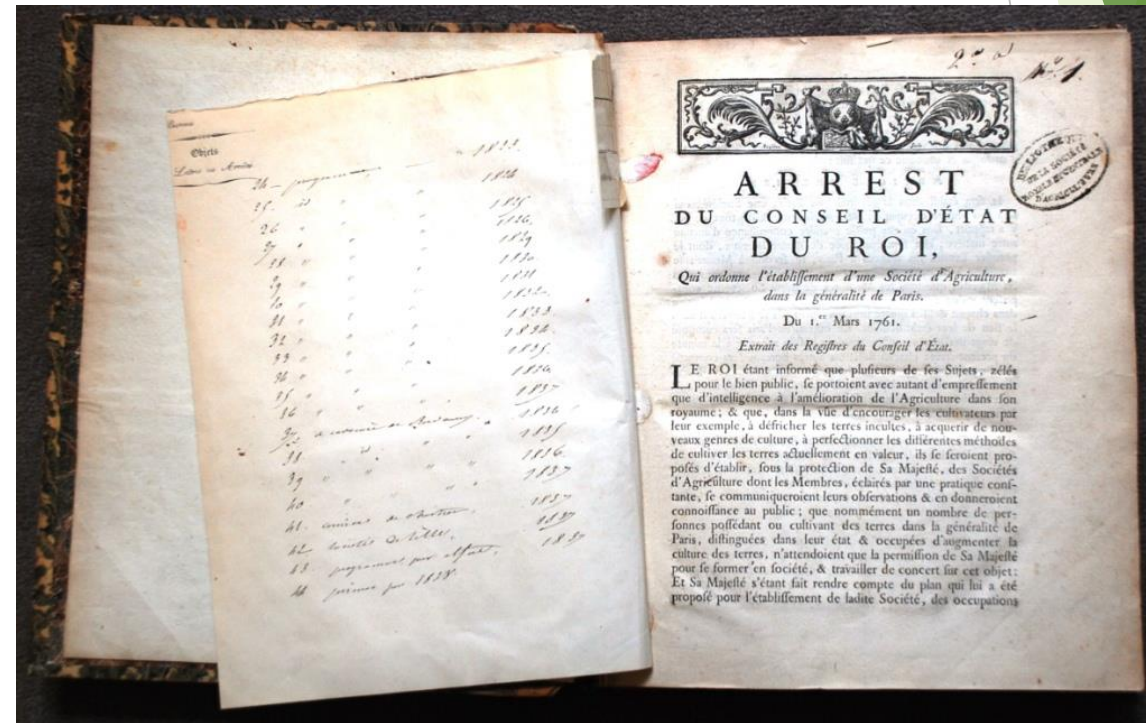 Objets
24 - programme, " 1823.
25. id " 1824
26 " " " 1825
27 " " " 1826.
28 " " " 1829
29 " " " 1830
30 " " " 1831
31 " " " 1832.
32 " " " 1833
33 " " " 1834.
34 " " " 1835.
35 " " " 1836
36 " " " 1837
1836
38. id. " " 1835
39 " " " " 1836.
40 " " " " 1837
41. comices 1837
42 société de Lille, 1837
43 programme par 1837
44 primes par 1838.
2.° a
N.° 1.
BIBLIOTHEQUE
DE LA SOCIÉTÉ
ROYALE ET CENTRALE
D'AGRICULTURE
ARREST
DU CONSEIL D'ÉTAT
DU ROI,
Qui ordonne l'établiſſement d'une Société d'Agriculture,
dans la généralité de Paris.
Du 1.er Mars 1761.
Extrait des Regiſtres du Conſeil d'État.
LE ROI étant informé que pluſieurs de ſes Sujets, zélés
pour le bien public, ſe portoient avec autant d'empreſſement
que d'intelligence à l'amélioration de l'Agriculture dans ſon
royaume; & que, dans la vûe d'encourager les cultivateurs par
leur exemple, à défricher les terres incultes, à acquerir de nou-
veaux genres de culture, à perfectionner les différentes méthodes
de cultiver les terres actuellement en valeur, ils ſe ſeroient pro-
poſés d'établir, ſous la protection de Sa Majeſté, des Sociétés
d'Agriculture dont les Membres, éclairés par une pratique conſ-
tante, ſe communiqueroient leurs obſervations & en donneroient
connoiſſance au public; que nommément un nombre de per-
ſonnes poſſédant ou cultivant des terres dans la généralité de
Paris, diſtinguées dans leur état & occupées d'augmenter la
culture des terres, n'attendoient que la permiſſion de Sa Majeſté
pour ſe former en ſociété, & travailler de concert ſur cet objet:
Et Sa Majeſté s'étant fait rendre compte du plan qui lui a été
propoſé pour l'établiſſement de ladite Société, des occupations